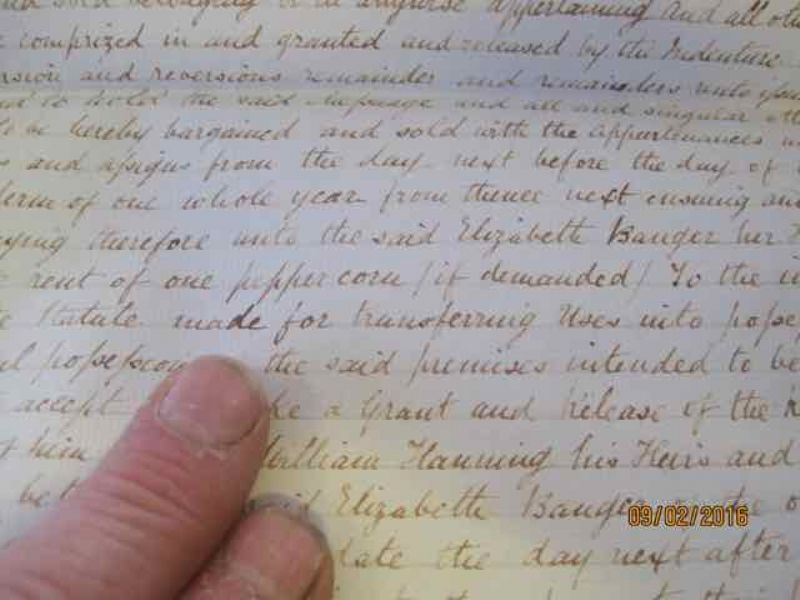 and sold belonging or in anywise appertaining And all othe
comprized in and granted and released by the Indenture
ersion and reversions remainder and remainders
to hold the said Messuage and all and singular
hereby bargained and sold with the appurtenances
and assigns from the day next before the day of
term of one whole year from thence next ensuing and
ying therefore unto the said Elizabeth Bauger her
rent of one pepper corn (if demanded) To the in
Statute made for transferring Uses into posse
the said premises intended to be
accept a Grant and release of the
him William Hanning his Heirs and
be Elizabeth Bauger
date the day next after
09/02/2016